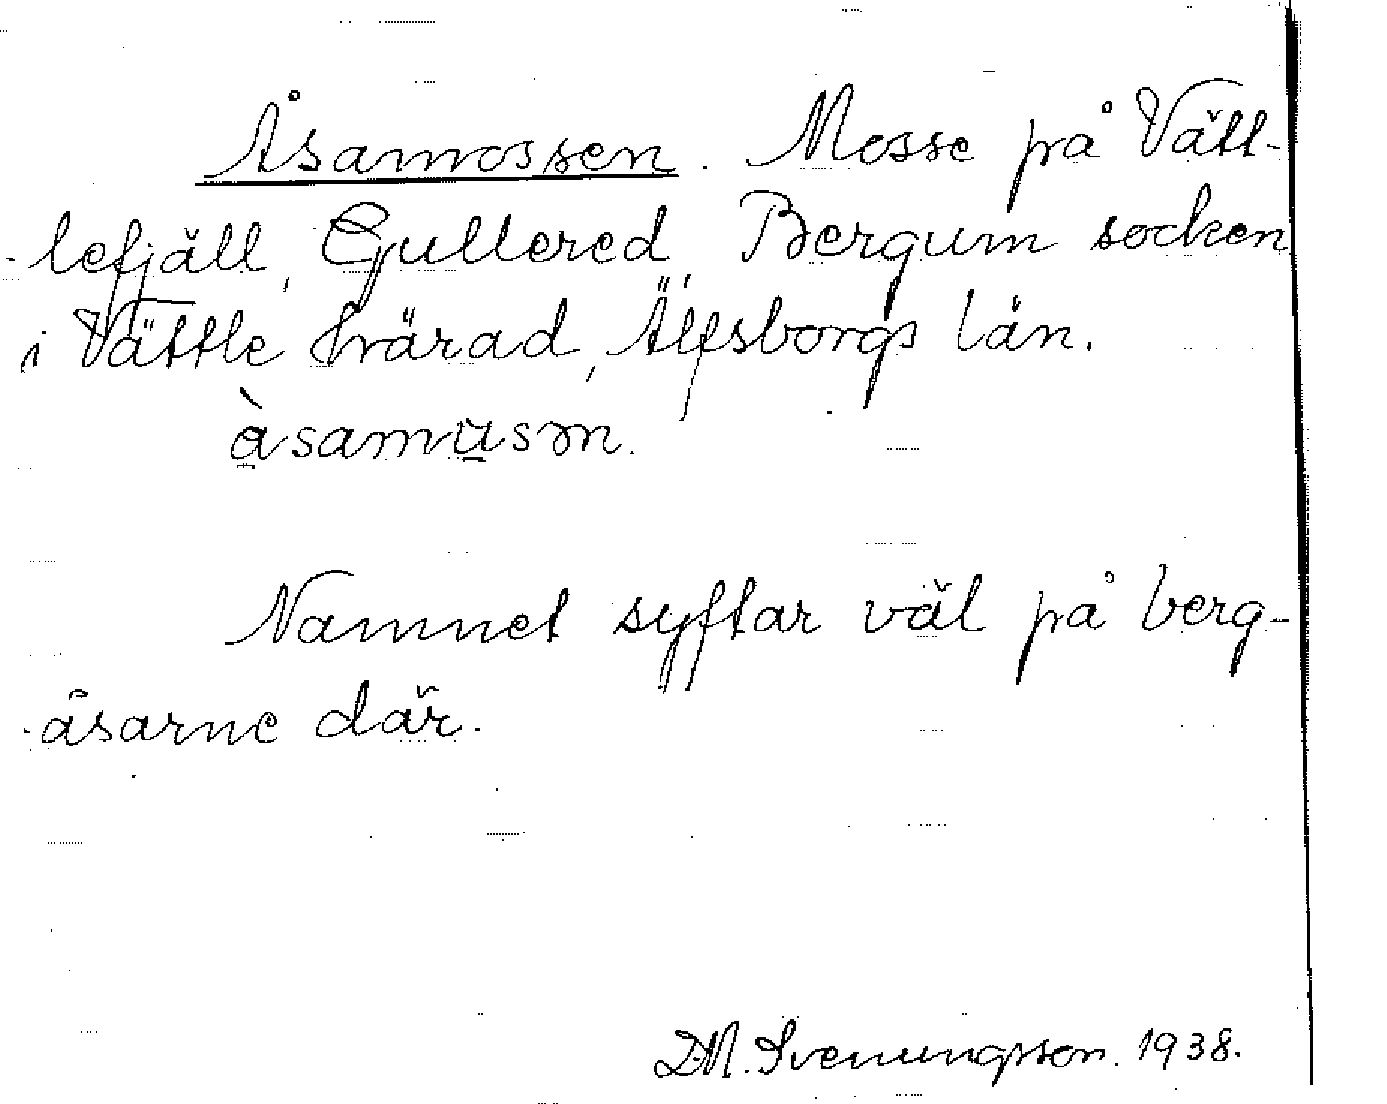 Åsamossen. Mosse på Vätt-
lefjäll, Gullered, Bergum socken
i Vättle härad, Älfsborgs län.
àsamusən.
Namnet syftar väl på berg-
åsarne där.
D.N. Svenungsson. 1938.